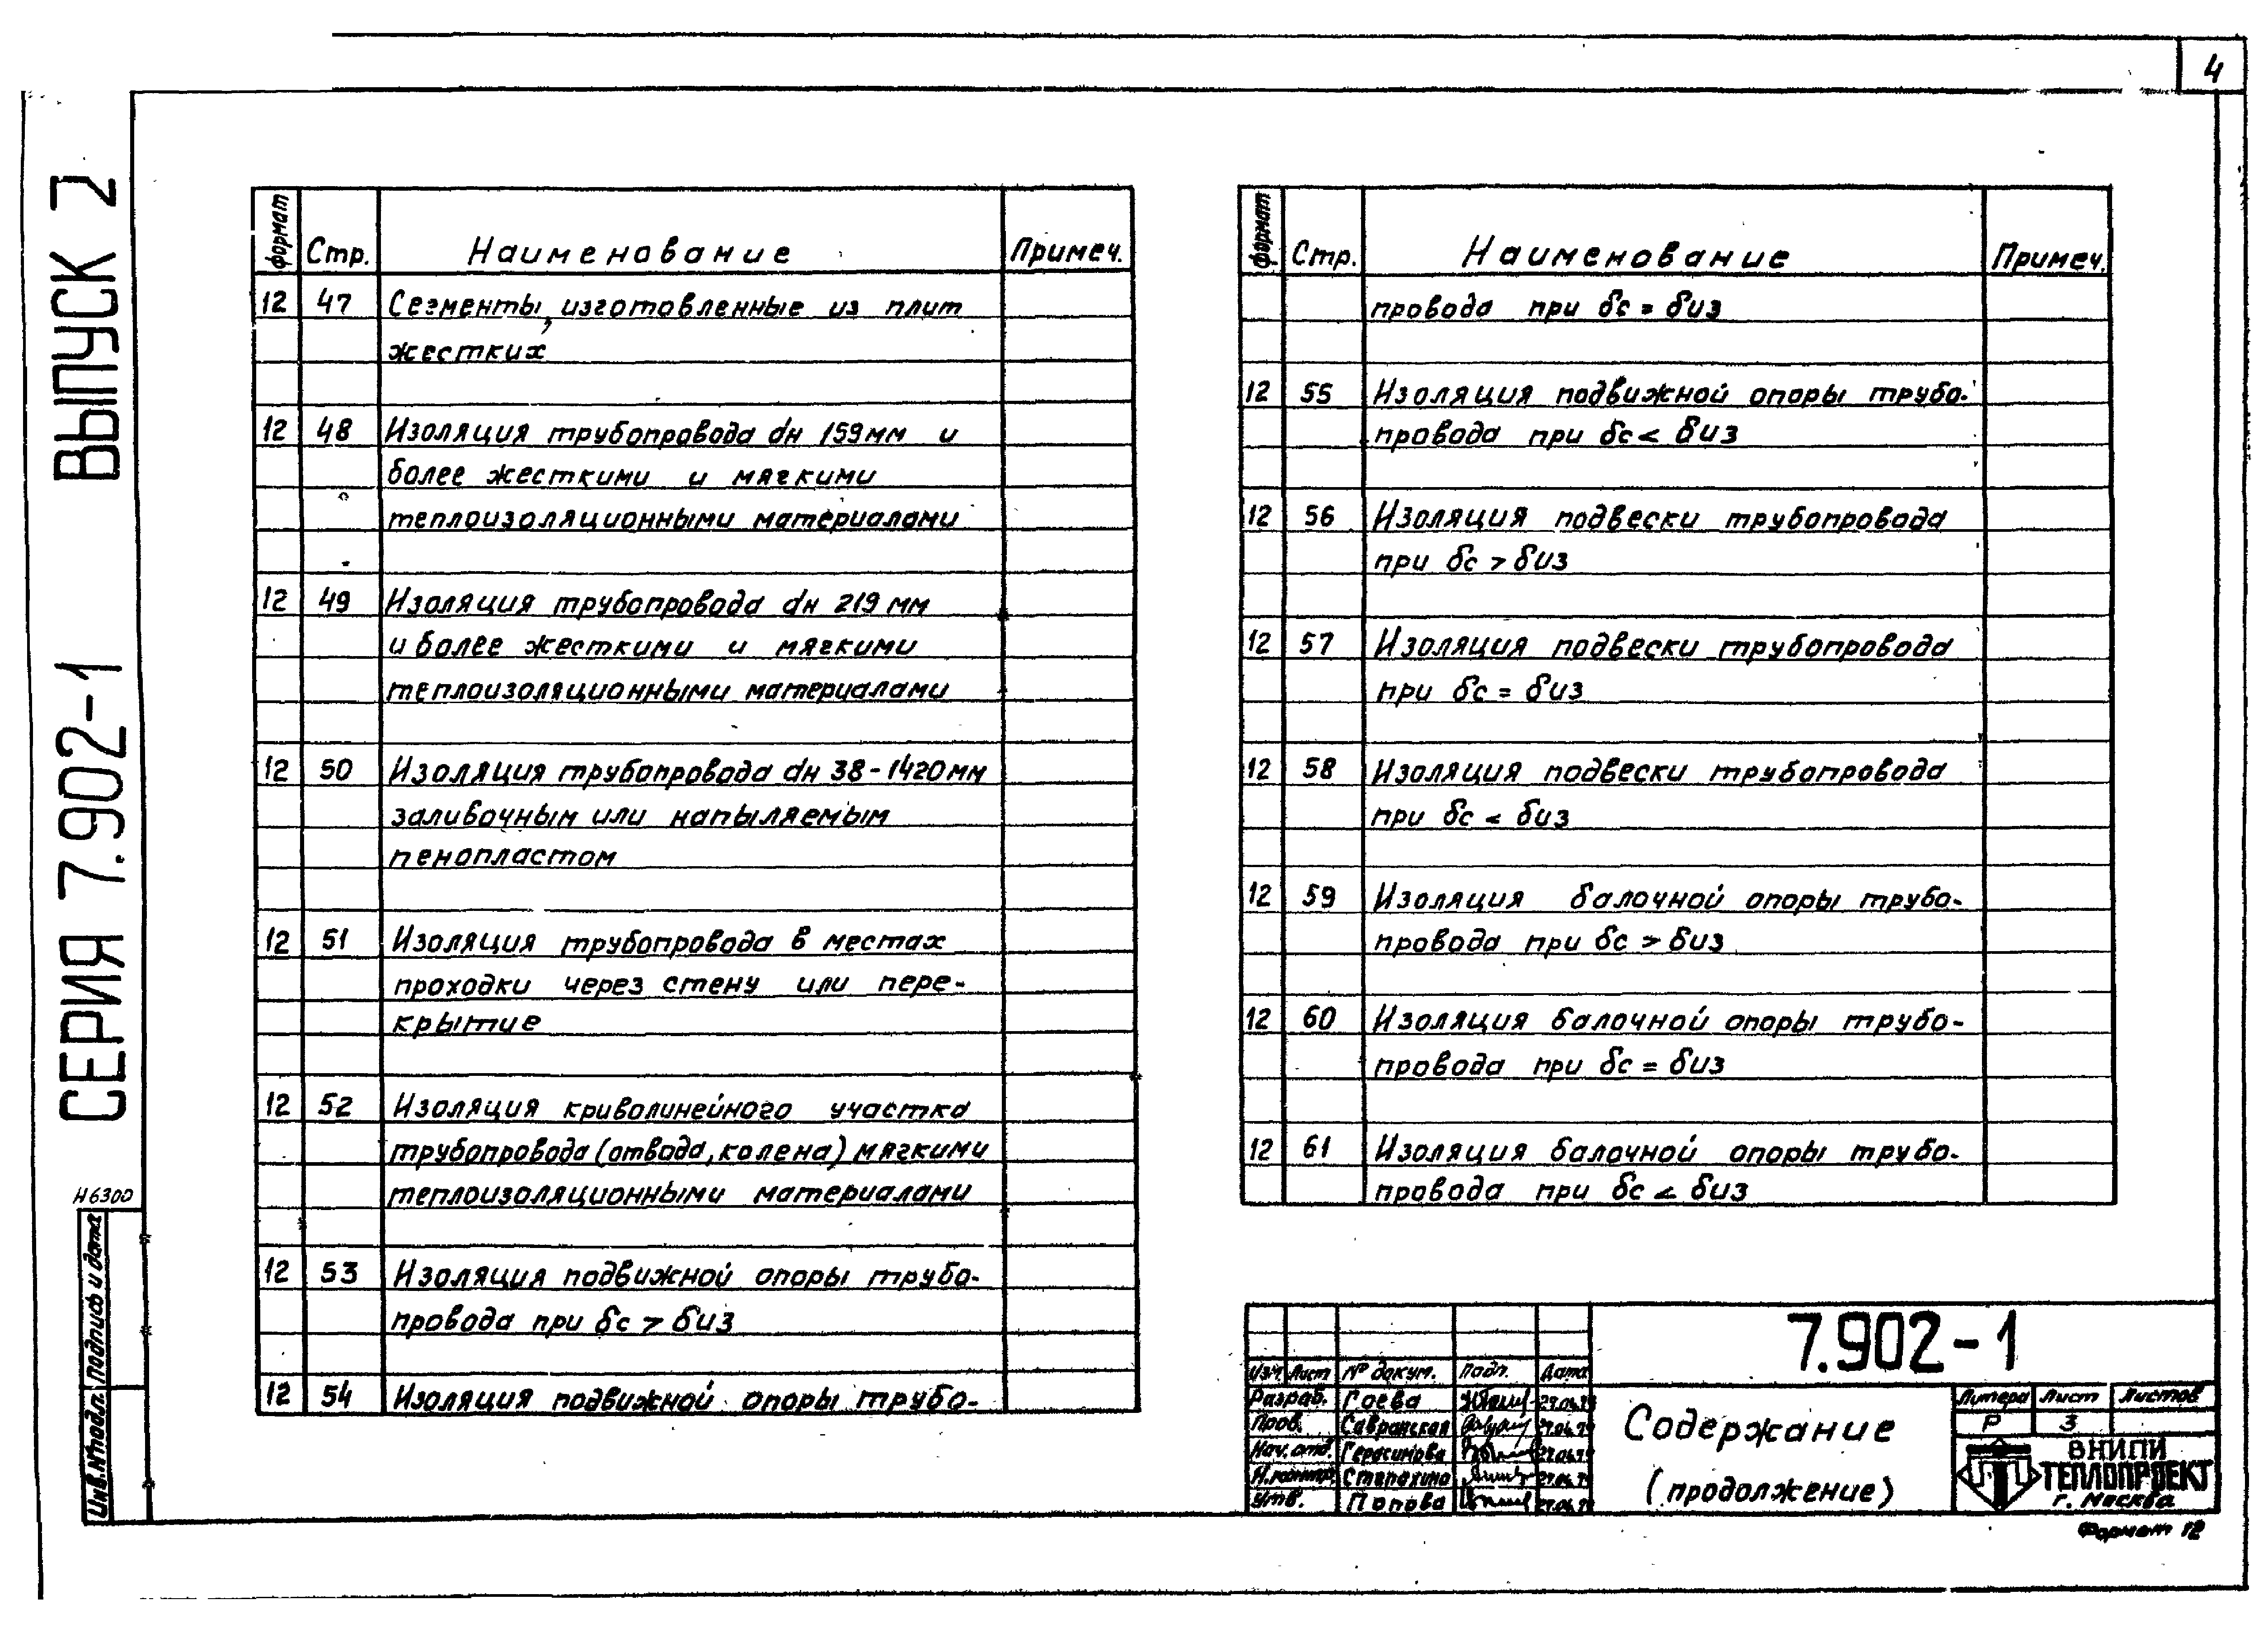 4
СЕРИЯ 7.902-1 ВЫПУСК 2
формат Стр. Наименование Примеч.
12 47 Сегменты, изготовленные из плит
жестких
12 48 Изоляция трубопровода dн 159мм и
более жесткими и мягкими
теплоизоляционными материалами
12 49 Изоляция трубопровода dн 219 мм
и более жесткими и мягкими
теплоизоляционными материалами
12 50 Изоляция трубопровода dн 38-1420мм
заливочным или напыляемым
пенопластом
12 51 Изоляция трубопровода в местах
проходки через стену или пере-
крытие
12 52 Изоляция криволинейного участка
трубопровода (отвода, колена) мягкими
теплоизоляционными материалами
12 53 Изоляция подвижной опоры трубо-
провода при δс > δиз
12 54 Изоляция подвижной опоры трубо-
формат Стр. Наименование Примеч.
провода при δс = δиз
12 55 Изоляция подвижной опоры трубо-
провода при δс < δиз
12 56 Изоляция подвески трубопровода
при δс > δиз
12 57 Изоляция подвески трубопровода
при δс = δиз
12 58 Изоляция подвески трубопровода
при δс < δиз
12 59 Изоляция балочной опоры трубо-
провода при δс > δиз
12 60 Изоляция балочной опоры трубо-
провода при δс = δиз
12 61 Изоляция балочной опоры трубо-
провода при δс < δиз
Н6300
Инв.№подл. Подпись и дата
7.902-1
Изм. Лист № докум. Подп. Дата
Разраб. Гоева
Пров. Савранская
Нач. отд. Герасимова
Н. контр. Степахина
Утв. Попова
Содержание
(продолжение)
Литера Лист Листов
Р 3
ВНИПИ
ТЕПЛОПРОЕКТ
г. Москва
Формат 12